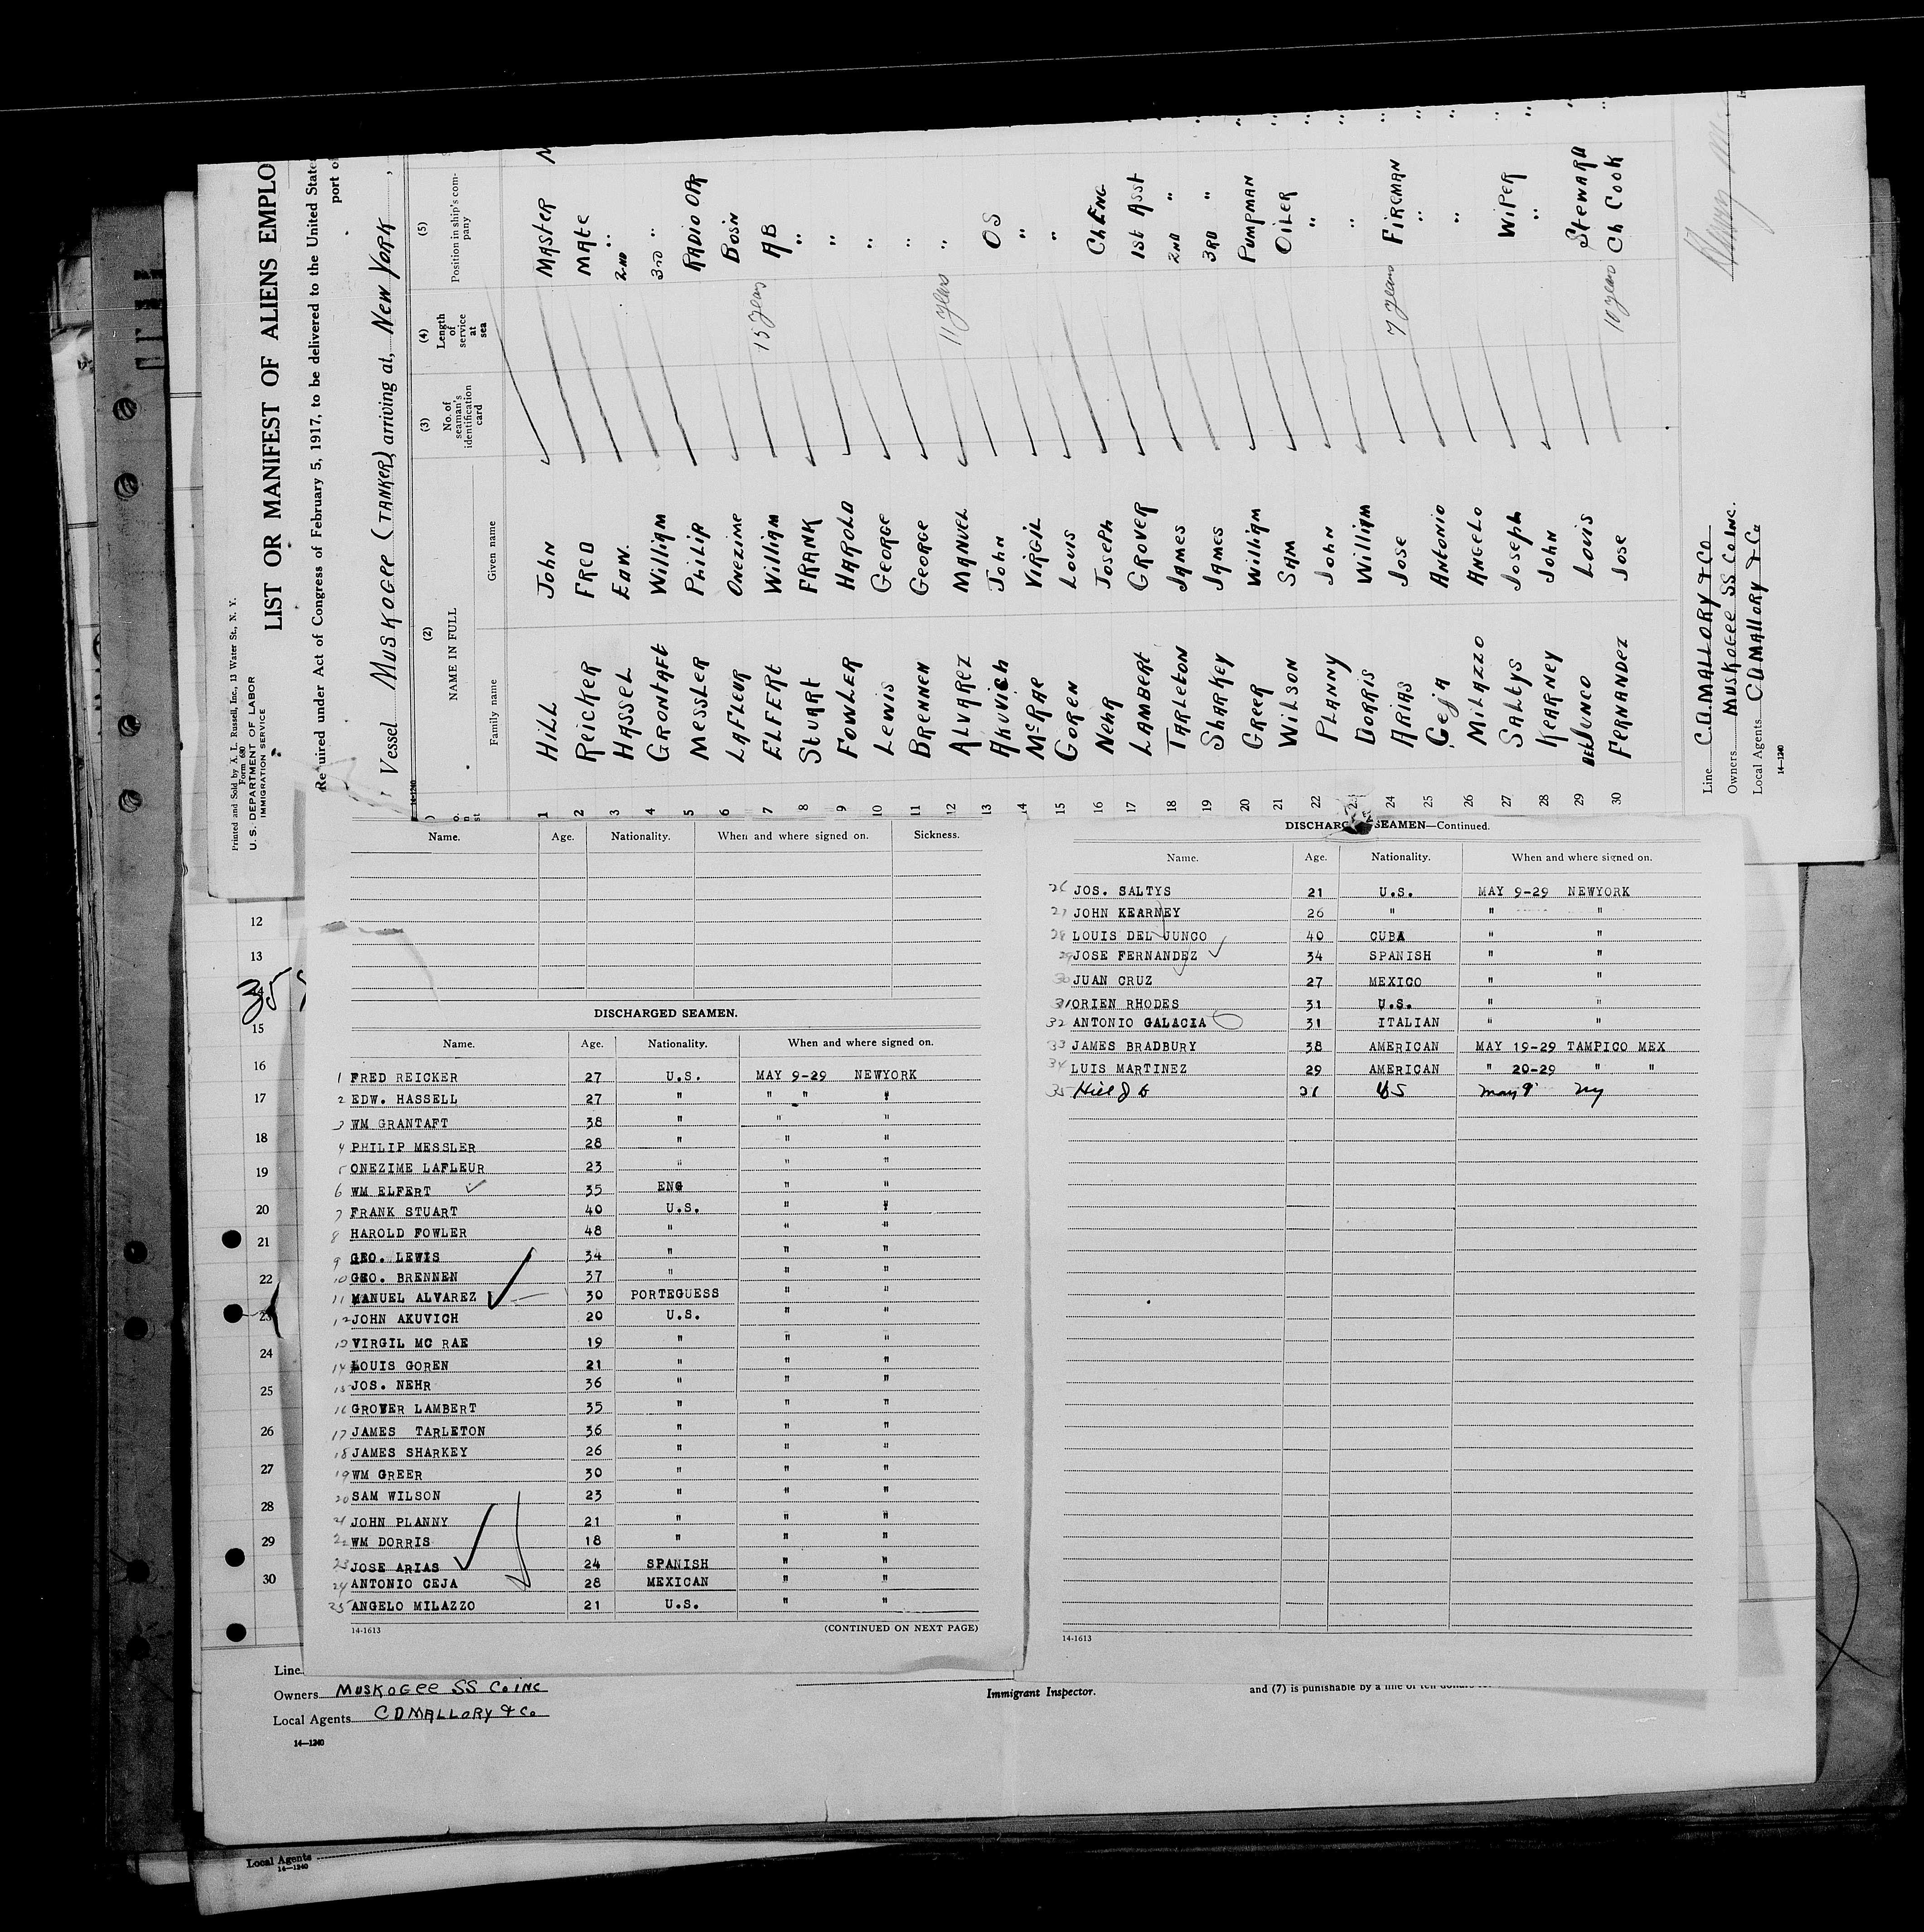 Printed and Sold by A. L. Russell, Inc., 13 Water St., N. Y.
Form 680
U. S. DEPARTMENT OF LABOR
IMMIGRATION SERVICE
LIST OR MANIFEST OF ALIENS EMPLO
Required under Act of Congress of February 5, 1917, to be delivered to the United State
port o
Vessel MUSKOGEE (TANKER), arriving at, New York,
14-1240
(2) (3) (4) (5)
NAME IN FULL No. of seaman's identification card Length of service at sea Position in ship's company
Family name Given name
1 HILL John MASTER
2 Reicker FRED MATE
3 HASSEL EDW. 2ND "
4 GRONTAFT William 3RD "
5 MESSLER PHILIP RADIO OPR
6 LAFLEUR ONEZIME BOSIN
7 ELFERT William 15 years AB
8 STUART FRANK "
9 FOWLER HAROLD "
10 LEWIS GEORGE "
11 BRENNEN GEORGE "
12 ALVAREZ MANUEL 11 years "
13 AKUVICH John OS
14 McRAE VIRGIL "
15 GOREN LOUIS "
16 NEHR JOSEPH CH ENG
17 LAMBERT GROVER 1ST ASST
18 TARLETON JAMES 2ND "
19 SHARKEY JAMES 3RD "
20 GREER William PUMPMAN
21 WILSON SAM OILER
22 PLANNY John "
23 DORRIS William "
24 ARIAS JOSE 7 years FIREMAN
25 CEJA ANTONIO "
26 MILAZZO ANGELO "
27 SALTYS JOSEPH WIPER
28 KEARNEY JOHN "
29 DEL JUNCO LOUIS STEWARD
30 FERNANDEZ JOSE 10 years Ch COOK
Line C.D. MALLORY & CO
Owners MUSKOGEE SS CO INC.
Local Agents CD MALLORY & Co
14-1240
Name. Age. Nationality. When and where signed on. Sickness.
DISCHARGED SEAMEN.
Name. Age. Nationality. When and where signed on.
1 FRED REICKER 27 U.S. MAY 9-29 NEWYORK
2 EDW. HASSELL 27 " " " "
3 WM GRANTAFT 38 " " "
4 PHILIP MESSLER 28 " " "
5 ONEZIME LAFLEUR 23 " " "
6 WM ELFERT 35 ENG " "
7 FRANK STUART 40 U.S. " "
8 HAROLD FOWLER 48 " " "
9 GEO. LEWIS 34 " " "
10 GEO. BRENNEN 37 " " "
11 MANUEL ALVAREZ 30 PORTEGUESS " "
12 JOHN AKUVICH 20 U.S. " "
13 VIRGIL MC RAE 19 " " "
14 LOUIS GOREN 21 " " "
15 JOS. NEHR 36 " " "
16 GROVER LAMBERT 35 " " "
17 JAMES TARLETON 36 " " "
18 JAMES SHARKEY 26 " " "
19 WM GREER 30 " " "
20 SAM WILSON 23 " " "
21 JOHN PLANNY 21 " " "
22 WM DORRIS 18 " " "
23 JOSE ARIAS 24 SPANISH " "
24 ANTONIO CEJA 28 MEXICAN " "
25 ANGELO MILAZZO 21 U.S. " "
14-1613 (CONTINUED ON NEXT PAGE)
DISCHARGED SEAMEN—Continued.
Name. Age. Nationality. When and where signed on.
26 JOS. SALTYS 21 U.S. MAY 9-29 NEWYORK
27 JOHN KEARNEY 26 " " "
28 LOUIS DEL JUNCO 40 CUBA " "
29 JOSE FERNANDEZ 34 SPANISH " "
30 JUAN CRUZ 27 MEXICO " "
31 ORIEN RHODES 31 U.S. " "
32 ANTONIO GALACIA 31 ITALIAN " "
33 JAMES BRADBURY 38 AMERICAN MAY 19-29 TAMPICO MEX
34 LUIS MARTINEZ 29 AMERICAN " 20-29 " "
35 Hill J US May 9 NY
14-1613
12
13
14
35
15
16
17
18
19
20
21
22
23
24
25
26
27
28
29
30
Line
Owners MUSKOGEE SS Co INC
Local Agents CDMALLORY & Co
14-1240
Immigrant Inspector.
and (7) is punishable by a fine of ten
Local Agents
14-1240